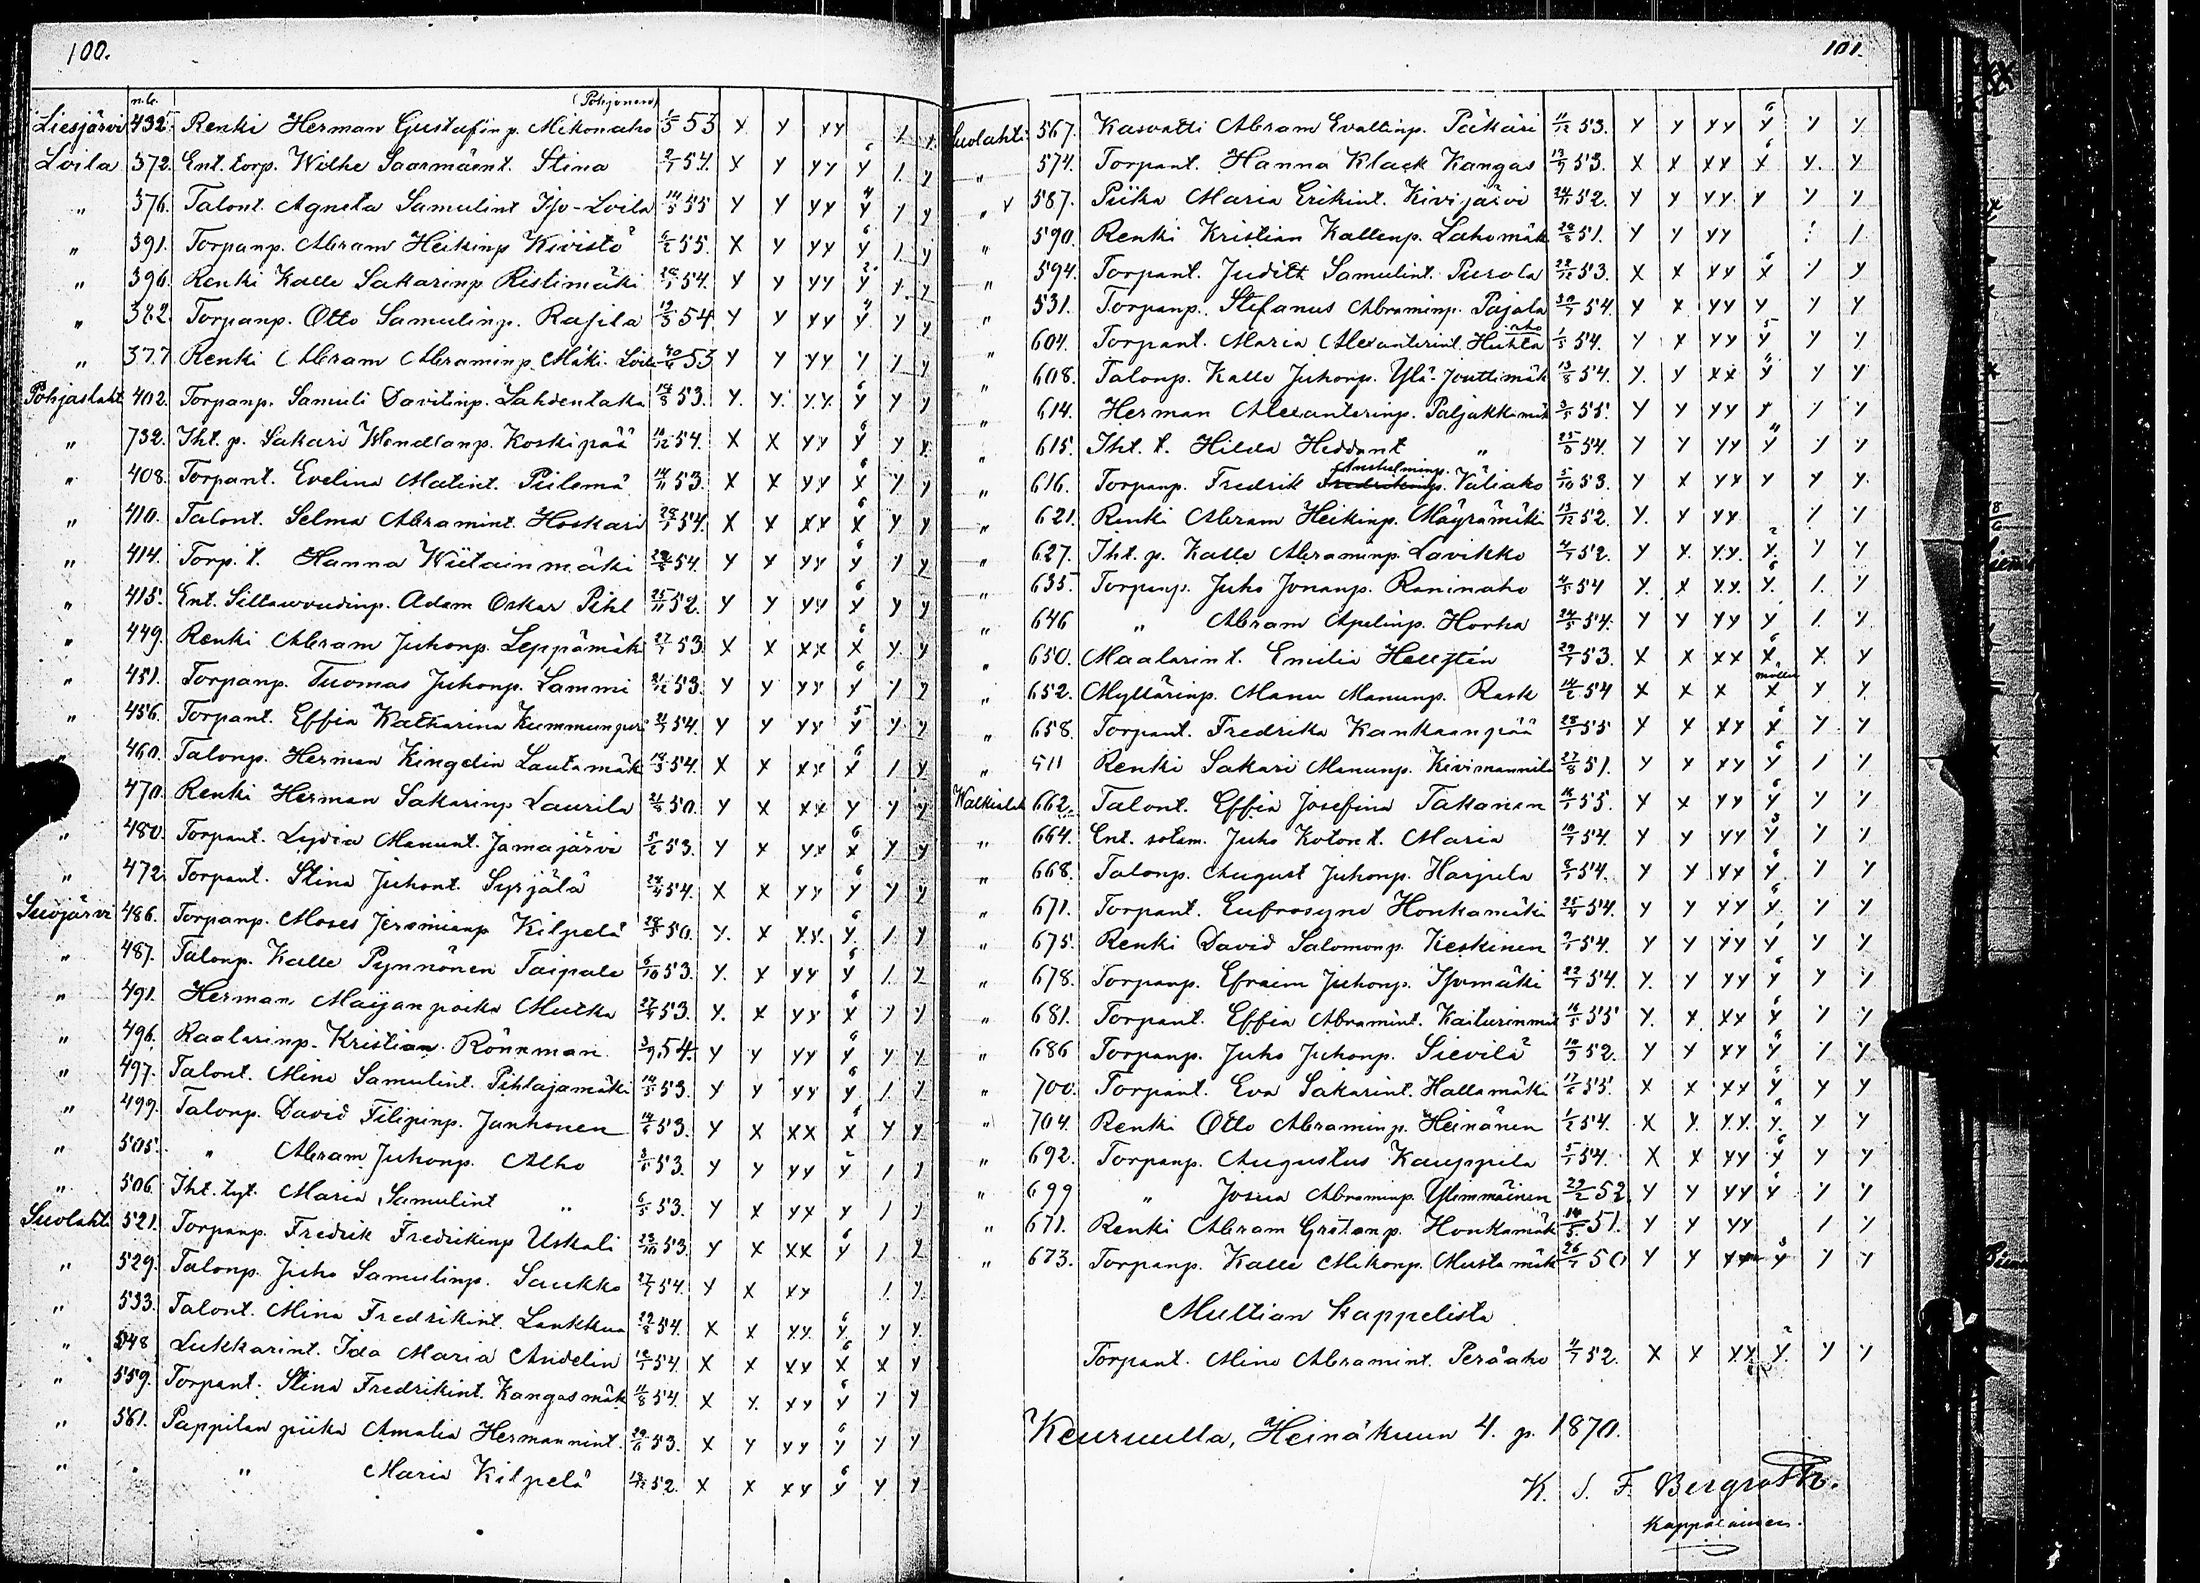 100.
n:o.
(Pohjonen)
Liesjärvi 432. Renki Herman Gustafinp. Mikonaho 53 x y yy 1 1
Loila 372. Ent. torp. Wilhe Saarmäent. Stina 2/7 54. x y yy y 6 1 y
" 376. Talont. Agneta Samulint Iso-Loila 14/5 55 y y yy y 4 1 y
" 391. Torpanp. Abram Heikinp Kivistö 55. x y yy y 6 1 y
" 396. Renki Kalle Sakarinp Ristimäki 54. y y yy y 2 1 y
" 382. Torpanp. Otto Samulinp. Rasila 54 y y yy y 4 y y
" 377 Renki Abram Abraminp. Mäki-Loila 53 y y yy y 1 y
Pohjaslaht 402. Torpanp. Samuli Davitinp. Lahdentaka 53. y. y. y.y. y 6 y y
" 732. Iht. p. Sakari Wendlanp. Koskipää 54. x x yy y 6 y y
" 408. Torpant. Evelina Matint. Piilomä 14/11 53. x x yy x 6 y y
" 410. Talont. Selma Abramint. Hoskari 54. x x xx x 6 y y
" 414. Torp. t. Hanna Wiitainmäki 54. y y yy y 6 1 y
" 415. Ent. Siltawoudinp. Adam Oskar Pihl 25/11 52. y y yy y 6 y y
" 449. Renki Abram Juhonp. Leppämäk 27/7 53 x x xx x 6 y y
" 451. Torpanp. Tuomas Juhonp. Lammi 53. y y yy y 6 1 y
" 456. Torpant. Effia Katharina Kummunpuri 54. y y yy y 5 1 y
" 460. Talonp. Herman Kingelin Lautamäk 54. x x xx x 6 1 y
470. Renki Herman Sakarinp Laurila 50. y x xx y y y
" 480. Torpant. Lydia Manunt. Jamajärvi 53. y x yx x 6 y y
" 472 Torpant. Stina Juhont. Syrjälä 54. x x yy y 6 y y
Suojärvi 486. Torpanp. Moses Jeremianp Kilpelä 50. y. x y.y. y 6 1 y
" 487. Talonp. Kalle Pynnönen Taipale 6/10 53. y. x yy y 6 1. y
" 491. Herman Maijan poika Mutka 53. y. x yy x 6 y y
" 496. Raalarinp. Kristian Rönnman 3/9 54. y y yy y 6 y y
" 497. Talont. Mina Samulint. Pihlajamäki 53. y y yy y 6 1 y
" 499. Talonp. David Filipinp. Janhonen 53. y x xx x 6 y y
" 505. " Abram Juhonp. Alho 53. y y yy y 2 1 y
" 506. Iht. tyt. Maria Samulint " 6/5 53. y x yy y 1 y
Suolaht 521. Torpanp. Fredrik Fredrikinp Uskali 23/10 53. y x xx y 6 1 y
" 529. Talonp. Juho Samulinp. Saukko 27/7 54. y x xy 1 y
" 533. Talont. Mina Fredrikint. Lankkua 54. x x yy. y 6 y y
" 548 Lukkarint. Ida Maria Andelin 54 x x xy x 6 x y
" 559. Torpant. Stina Fredrikint. Kangasmäk 54. x x xy y 6 y y
" 561. Pappilan piika Amalia Hermannint. 53. x y yy y 6 y y
" " Maria Kilpelä 52. x x xy y 6 y y
101.
Suolahti 567. Kasvatti Abram Evaltinp. Päkäri 11/12 53. y y yy y 6 y y
" 574. Torpant. Hanna Klack Kangas 13/9 53. x x xx x 6 y. y
" v 587. Piika Maria Erikint. Kivijärvi 52. y y yy y y y
" 590. Renki Kristian Kallenp. Lahomäk 51. y y yy 1
" 594. Torpant. Judith Samulint. Purola 53. x x xy x 6 1 y
" 531. Torpanp. Stefanus Abraminp. Pajala 54. y x yy y y y
" 604. Torpant. Maria Alexanterint. Huhta aho 54. y x yy y 5 y y
" 608. Talonp. Kalle Juhonp. Ylä-Jouttimäk 13/8 54. y. y xx y 4 y y
" 614. Herman Alexanterinp. Paljakkamäk 55. y y yy y 1 y
" 615. Iht. t. Hilda Heddant " 25/8 54. y y yy y 4 y y
Anshelminp.
" 616. Torpanp. Fredrik Fredrikinp. Väliaho 5/10 53. y x yy y y y.
" 621. Renki Abram Heikinp. Mäyrämäki 13/12 52. y. y yy 1 1
" 627. Iht. p. Kalle Abraminp. Lavikko 52. y x. y.y. y. 2 y y
" 635. Torpanp. Juho Jonanp. Raninaho 54 y. x y.y. y. 6 1. y
" 646 " Abram Apelinp. Horha 54. y y yy y 1 y
" 650. Maalarint. Emilia Hellstén 29/7 53. x x xx x 6 x. y
" 652. Myllärinp. Manu Manunp. Rask 54 x x x x y y.
" 658. Torpant. Fredrika Kankaanpää 55 y y xy x 6 y y
" 511 Renki Sakari Manunp. Kivimannila 27/8 51. y x xy y 6 1 y
Walkialah 662. Talont. Effia Josefina Takanen 55. y x yy y 6 y y
" 664. Ent. solam. Juho Kotone t. Maria 54. y y yy y 3 y y
" 668. Talonp. August Juhonp. Harjula 54. y y yy y 6 y y
" 671. Torpant. Eufrosyne Honkamäki 54. y y yy y. 6 y y
" 675. Renki David Salomonp. Keskinen 54. y y yy y y y
" 678. Torpanp. Efraim Juhonp. Isomäki 54. y. y yy y 6 y y
" 681. Torpant. Effia Abramint. Kaiturinmäk 16/5 55 y. x xy y 6 y y
" 686 Torpanp. Juho Juhonp. Sievilä 52. y y xy y 6 1 y
" 700. Torpant. Eva Sakarint. Hallamäki 55. x x xy y 6 y y
" 704. Renki Otto Abraminp. Heinänen 54. x y. y.y. y. 6 y y
" 692. Torpanp. Augustus Kauppila 54. x x yy y 6 y y
" 699 " Josua Abraminp. Ylimmäinen 29/2 52 y y yy y 6 y y
" 671. Renki Abram Gretanp. Honkamäk 14/5 51. y y yy 1 y
" 673. Torpanp. Kalle Mikonp. Mustamäk 50 y y y 3 y y
Multian kappelista
Torpant. Mina Abramint. Peräaho 4/7 52. x x y.y. y. 2 y y
Keuruulla, Heinäkuun 4. p. 1870.
K. J. F. Bergroth.
Kappalainen.